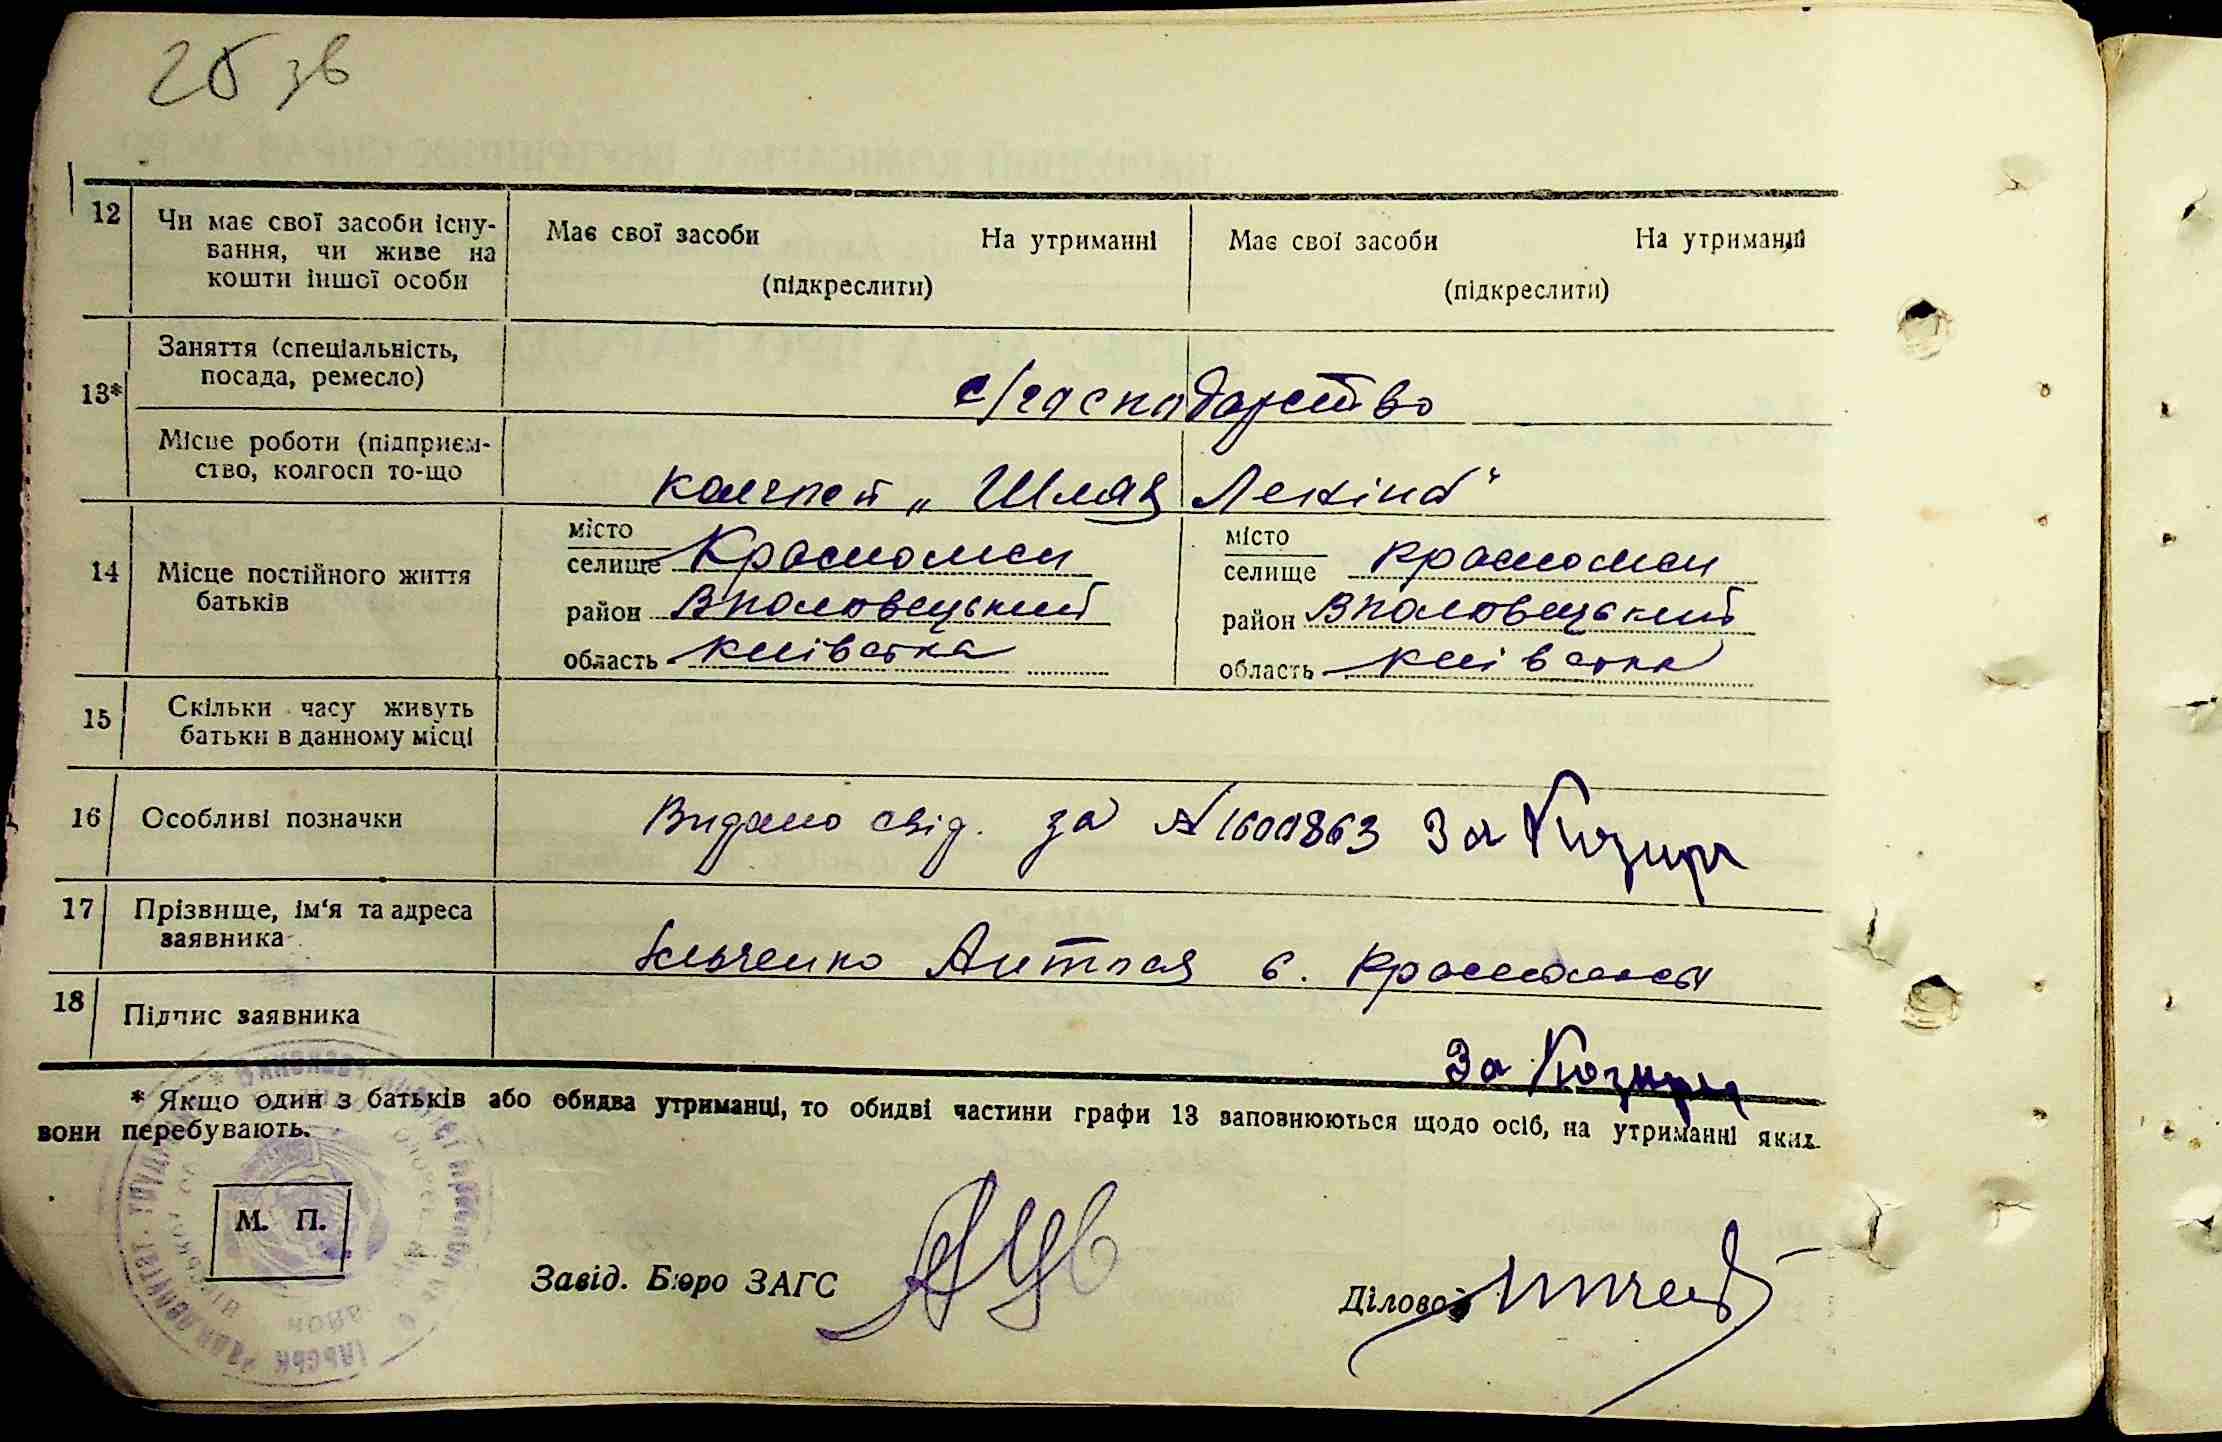 26 зв
12
Чи має свої засоби існу-
вання, чи живе на
кошти іншої особи
Має свої засоби На утриманні
(підкреслити)
Має свої засоби На утриманні
(підкреслити)
13*
Заняття (спеціальність,
посада, ремесло)
с/господарство
Місце роботи (підприєм-
ство, колгосп то-що
колгосп „Шлях Леніна"
14
Місце постійного життя
батьків
місто
селище
район
область Київська
місто
селище
район
область Київська
15
Скільки часу живуть
батьки в данному місці
16
Особливі позначки
Видано свід. за № 1600863 За Козир
17
Прізвище, ім'я та адреса
заявника
Ільченко с.
18
Підпис заявника
За Козир
* Якщо один з батьків або обидва утриманці, то обидві частини графи 13 заповнюються щодо осіб, на утриманні яких
вони перебувають.
М. П.
Завід. Бюро ЗАГС
Діловод